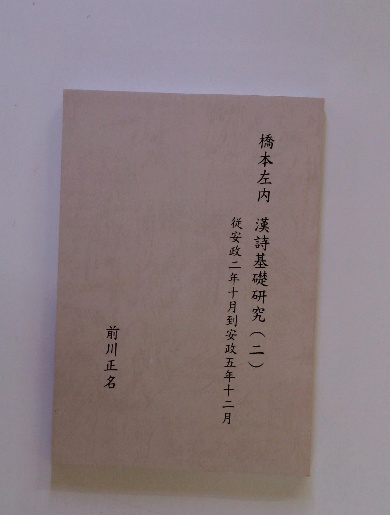 橋本左内 漢詩基礎研究(二)
従安政二年十月到安政五年十二月
前川正名